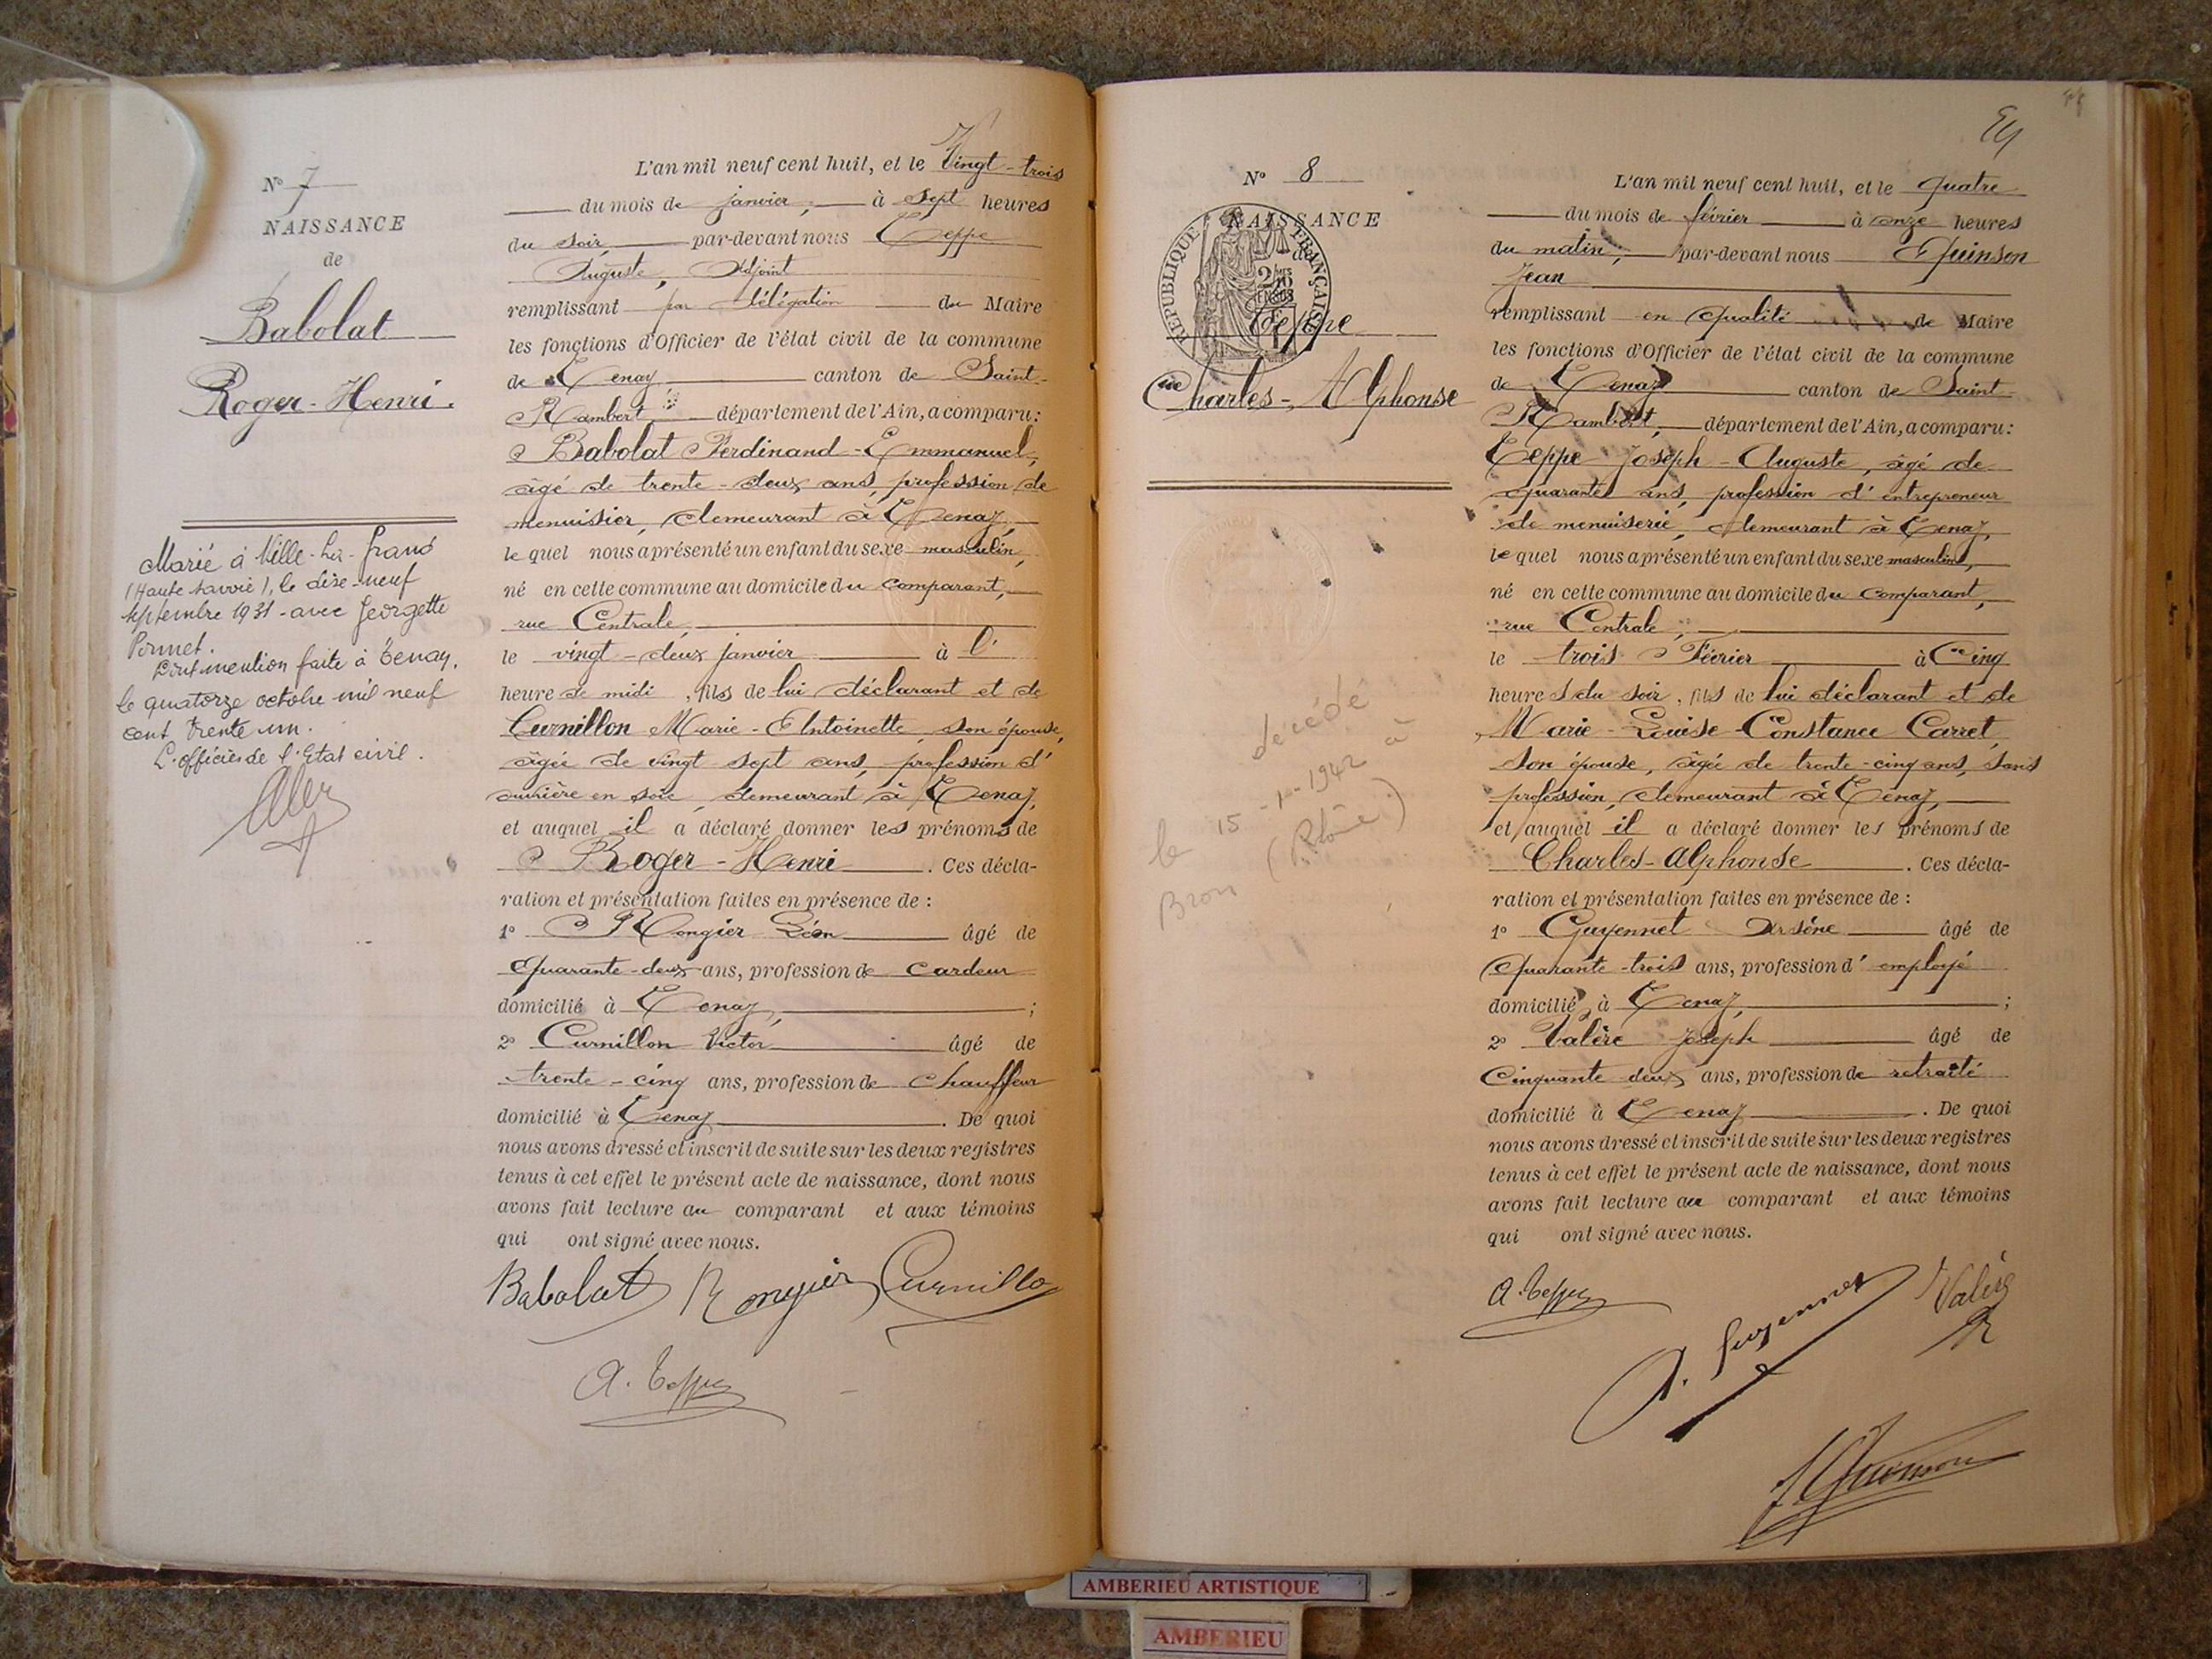 N° 7
NAISSANCE
de
Babolat
Roger-Henri.
Marié à Ville-la-Grand
(Haute Savoie), le dixe-neuf
septembre 1931 - avec Georgette
Dont mention faite à Tenay,
le quatorze octobre mil neuf
cent trente un.
L'officier de l'Etat civil.
L'an mil neuf cent huit, et le Vingt-trois
du mois de janvier, à sept heures
du soir, par-devant nous Teppe
Auguste, Adjoint
remplissant par délégation du Maire
les fonctions d'Officier de l'état civil de la commune
de Tenay canton de Saint-
Rambert département de l'Ain, a comparu:
Babolat Ferdinand-Emmanuel,
âgé de trente-deux ans, profession de
menuisier, demeurant à Tenay,
le quel nous a présenté un enfant du sexe masculin,
né en cette commune au domicile du comparant,
rue Centrale,
le vingt-deux janvier à l'
heure de midi, fils de lui déclarant et de
Curnillon Marie-Antoinette, son épouse,
âgée de vingt sept ans, profession d'
ouvrière en soie, demeurant à Tenay,
et auquel il a déclaré donner les prénoms de
Roger-Henri. Ces décla-
ration et présentation faites en présence de :
1° Rongier Léon âgé de
Quarante-deux ans, profession de cardeur
domicilié à Tenay, ;
2° Curnillon Victor âgé de
trente-cinq ans, profession de chauffeur
domicilié à Tenay. De quoi
nous avons dressé et inscrit de suite sur les deux registres
tenus à cet effet le présent acte de naissance, dont nous
avons fait lecture au comparant et aux témoins
qui ont signé avec nous.
Babolat Rongier Curnillo
A. Teppe
N° 8
NAISSANCE
de
RÉPUBLIQUE FRANÇAISE
Teppe
Charles-Alphonse
décédé
le 15-1-1942 à
Bron (Rhône)
L'an mil neuf cent huit, et le quatre
du mois de février à onze heures
du matin, par-devant nous Quinson
Jean
remplissant en qualité de Maire
les fonctions d'Officier de l'état civil de la commune
de Tenay canton de Saint-
Rambert, département de l'Ain, a comparu:
Teppe Joseph-Auguste, âgé de
quarante ans, profession d'entrepreneur
de menuiserie, demeurant à Tenay,
le quel nous a présenté un enfant du sexe masculin,
né en cette commune au domicile du comparant,
rue Centrale,
le trois Février à Cinq
heures du soir, fils de lui déclarant et de
Marie-Louise-Constance Carret,
son épouse, âgée de trente-cinq ans, sans
profession, demeurant à Tenay,
et auquel il a déclaré donner les prénoms de
Charles-Alphonse. Ces décla-
ration et présentation faites en présence de :
1° Guyennet Arsène âgé de
Quarante-trois ans, profession d'employé
domicilié à Tenay, ;
2° Valère Joseph âgé de
Cinquante deux ans, profession de retraité
domicilié à Tenay. De quoi
nous avons dressé et inscrit de suite sur les deux registres
tenus à cet effet le présent acte de naissance, dont nous
avons fait lecture au comparant et aux témoins
qui ont signé avec nous.
A. Teppe
A. Guyennet
Valère
J. Quinson
AMBERIEU ARTISTIQUE
AMBERIEU